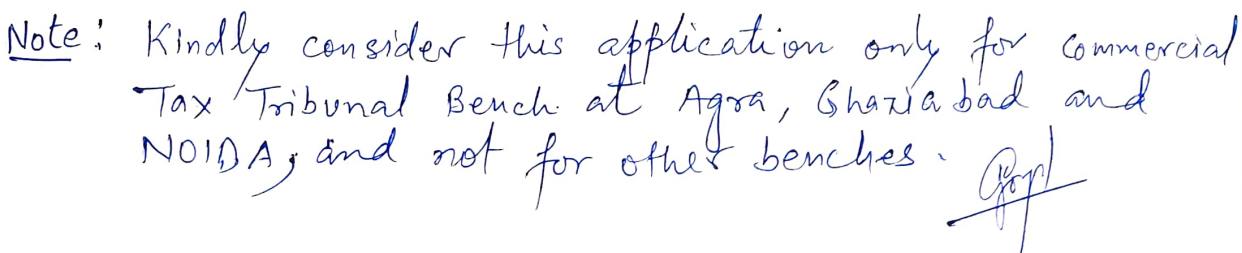 Note: Kindly consider this application only for Commercial
Tax Tribunal Bench at Agra, Ghaziabad and
NOIDA, and not for other benches.